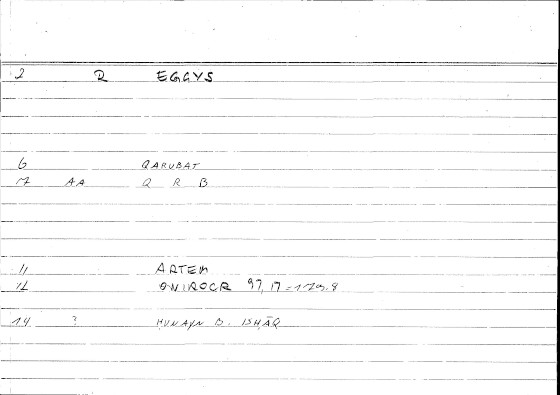 2 R EGGYS
6 QARUBAT
17 AA Q R B
11 ARTEM
12 ONIROCR 97,17 = 179.9
14 ? HUNAYN B. ISHĀQ